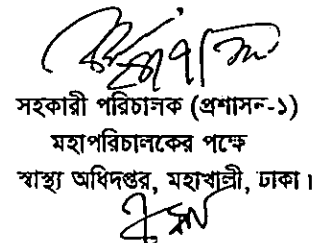 সহকারী পরিচালক (প্রশাসন-১)
মহাপরিচালকের পক্ষে
স্বাস্থ্য অধিদপ্তর, মহাখালী, ঢাকা।